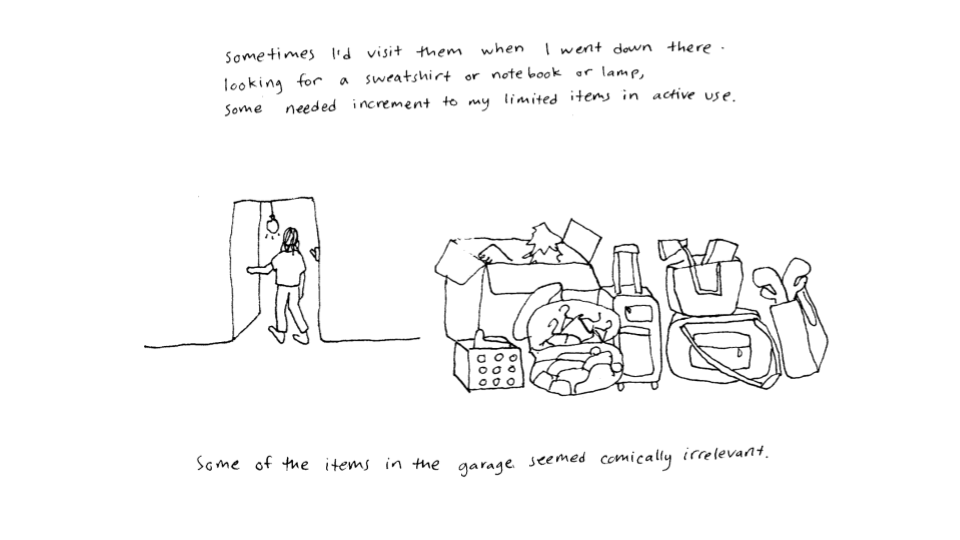 Sometimes I'd visit them when I went down there.
looking for a sweatshirt or notebook or lamp,
some needed increment to my limited items in active use.
Some of the items in the garage seemed comically irrelevant.